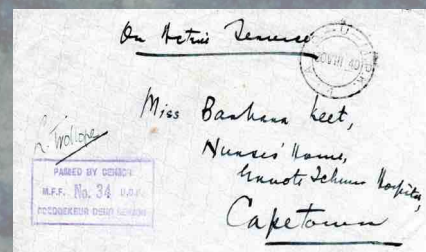 On Active Service
Miss Barbara Keet,
Nurses' Home,
Groote Schuur Hospital,
Capetown
R. Trollope
PASSED BY CENSOR
M.F.F. No. 34 U.D.F.
GOEDGEKEUR DEUR SENSOR